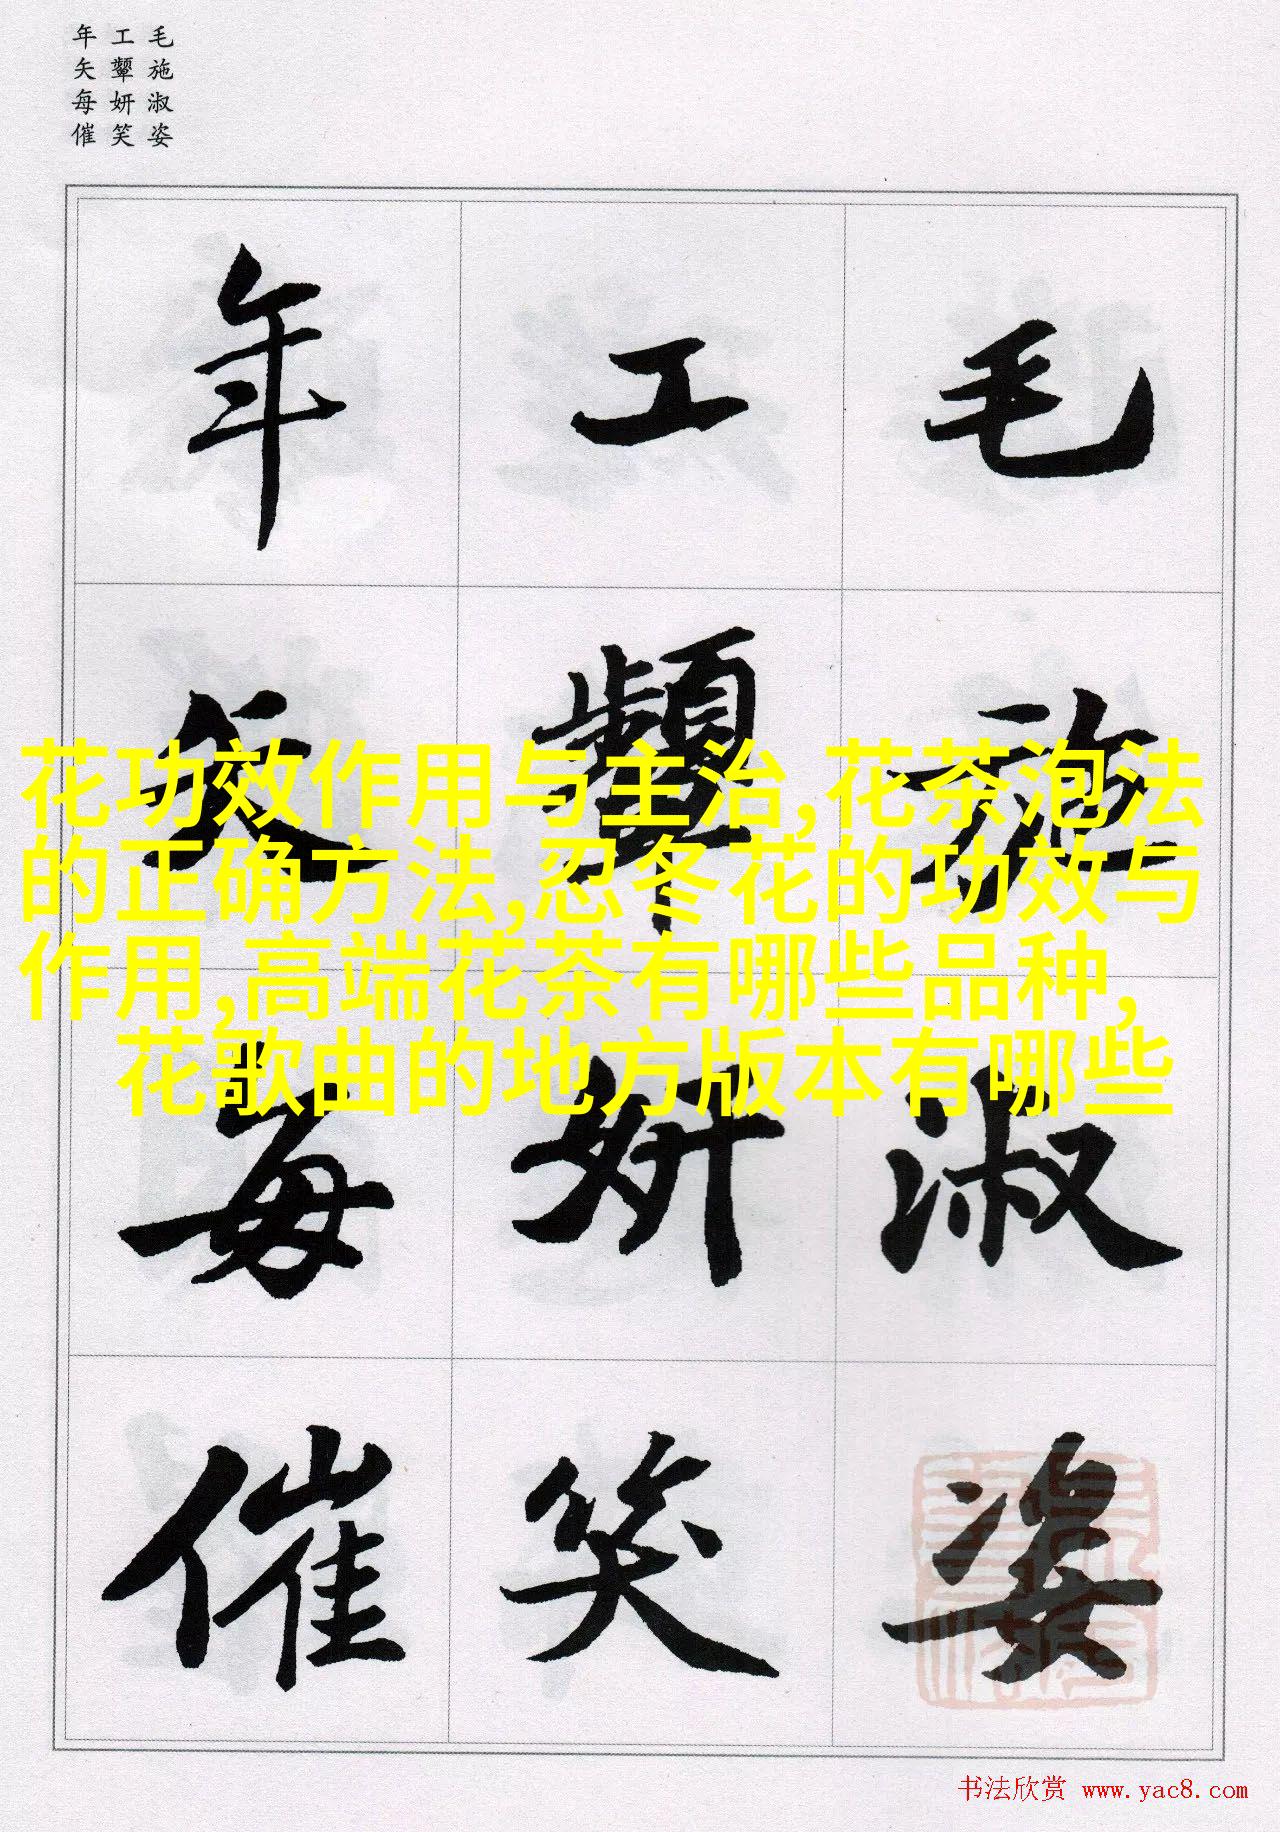 毛施淑姿
工颦妍笑
年矢每催
毛施淑姿
工颦妍笑
年矢每催
花功效作用与主治,花茶泡法
的正确方法,忍冬花的功效与
作用,高端花茶有哪些品种,
花歌曲的地方版本有哪些
书法欣赏 www.yac8.com